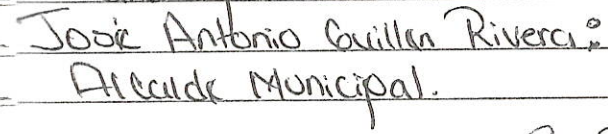 José Antonio Guillen Rivera:
Alcalde Municipal.